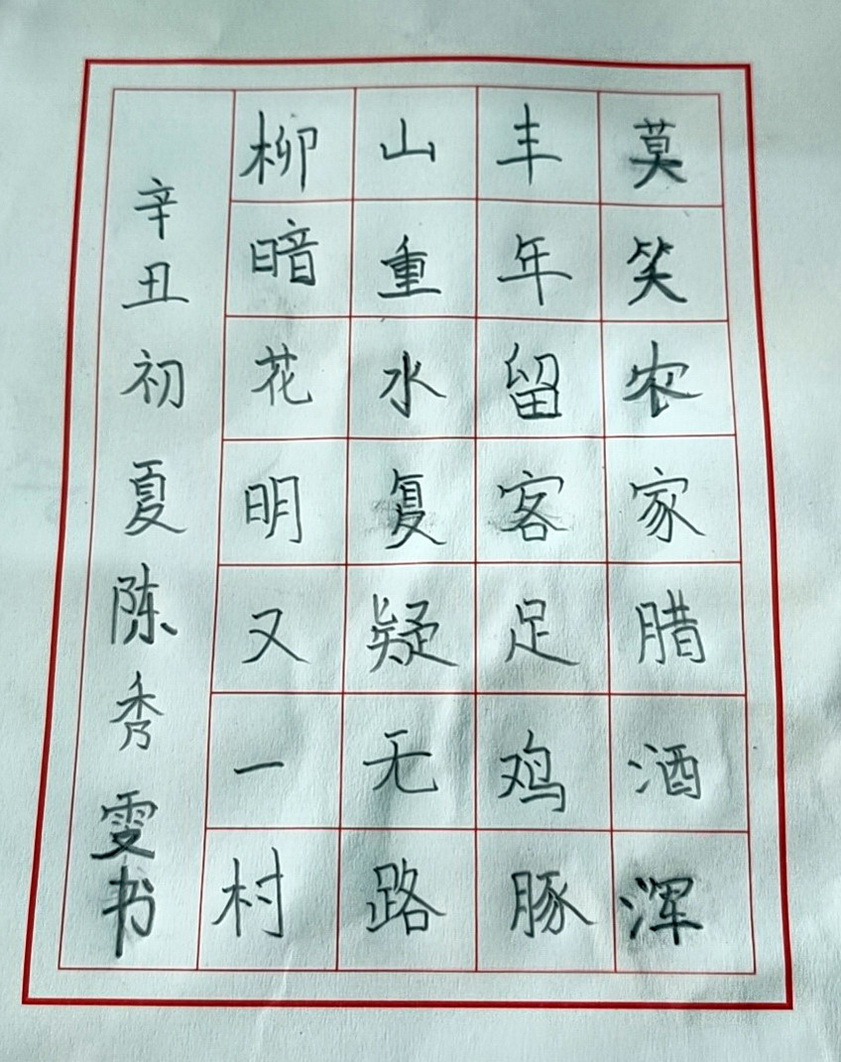 莫笑农家腊酒浑
丰年留客足鸡豚
山重水复疑无路
柳暗花明又一村
辛丑初夏陈秀雯书